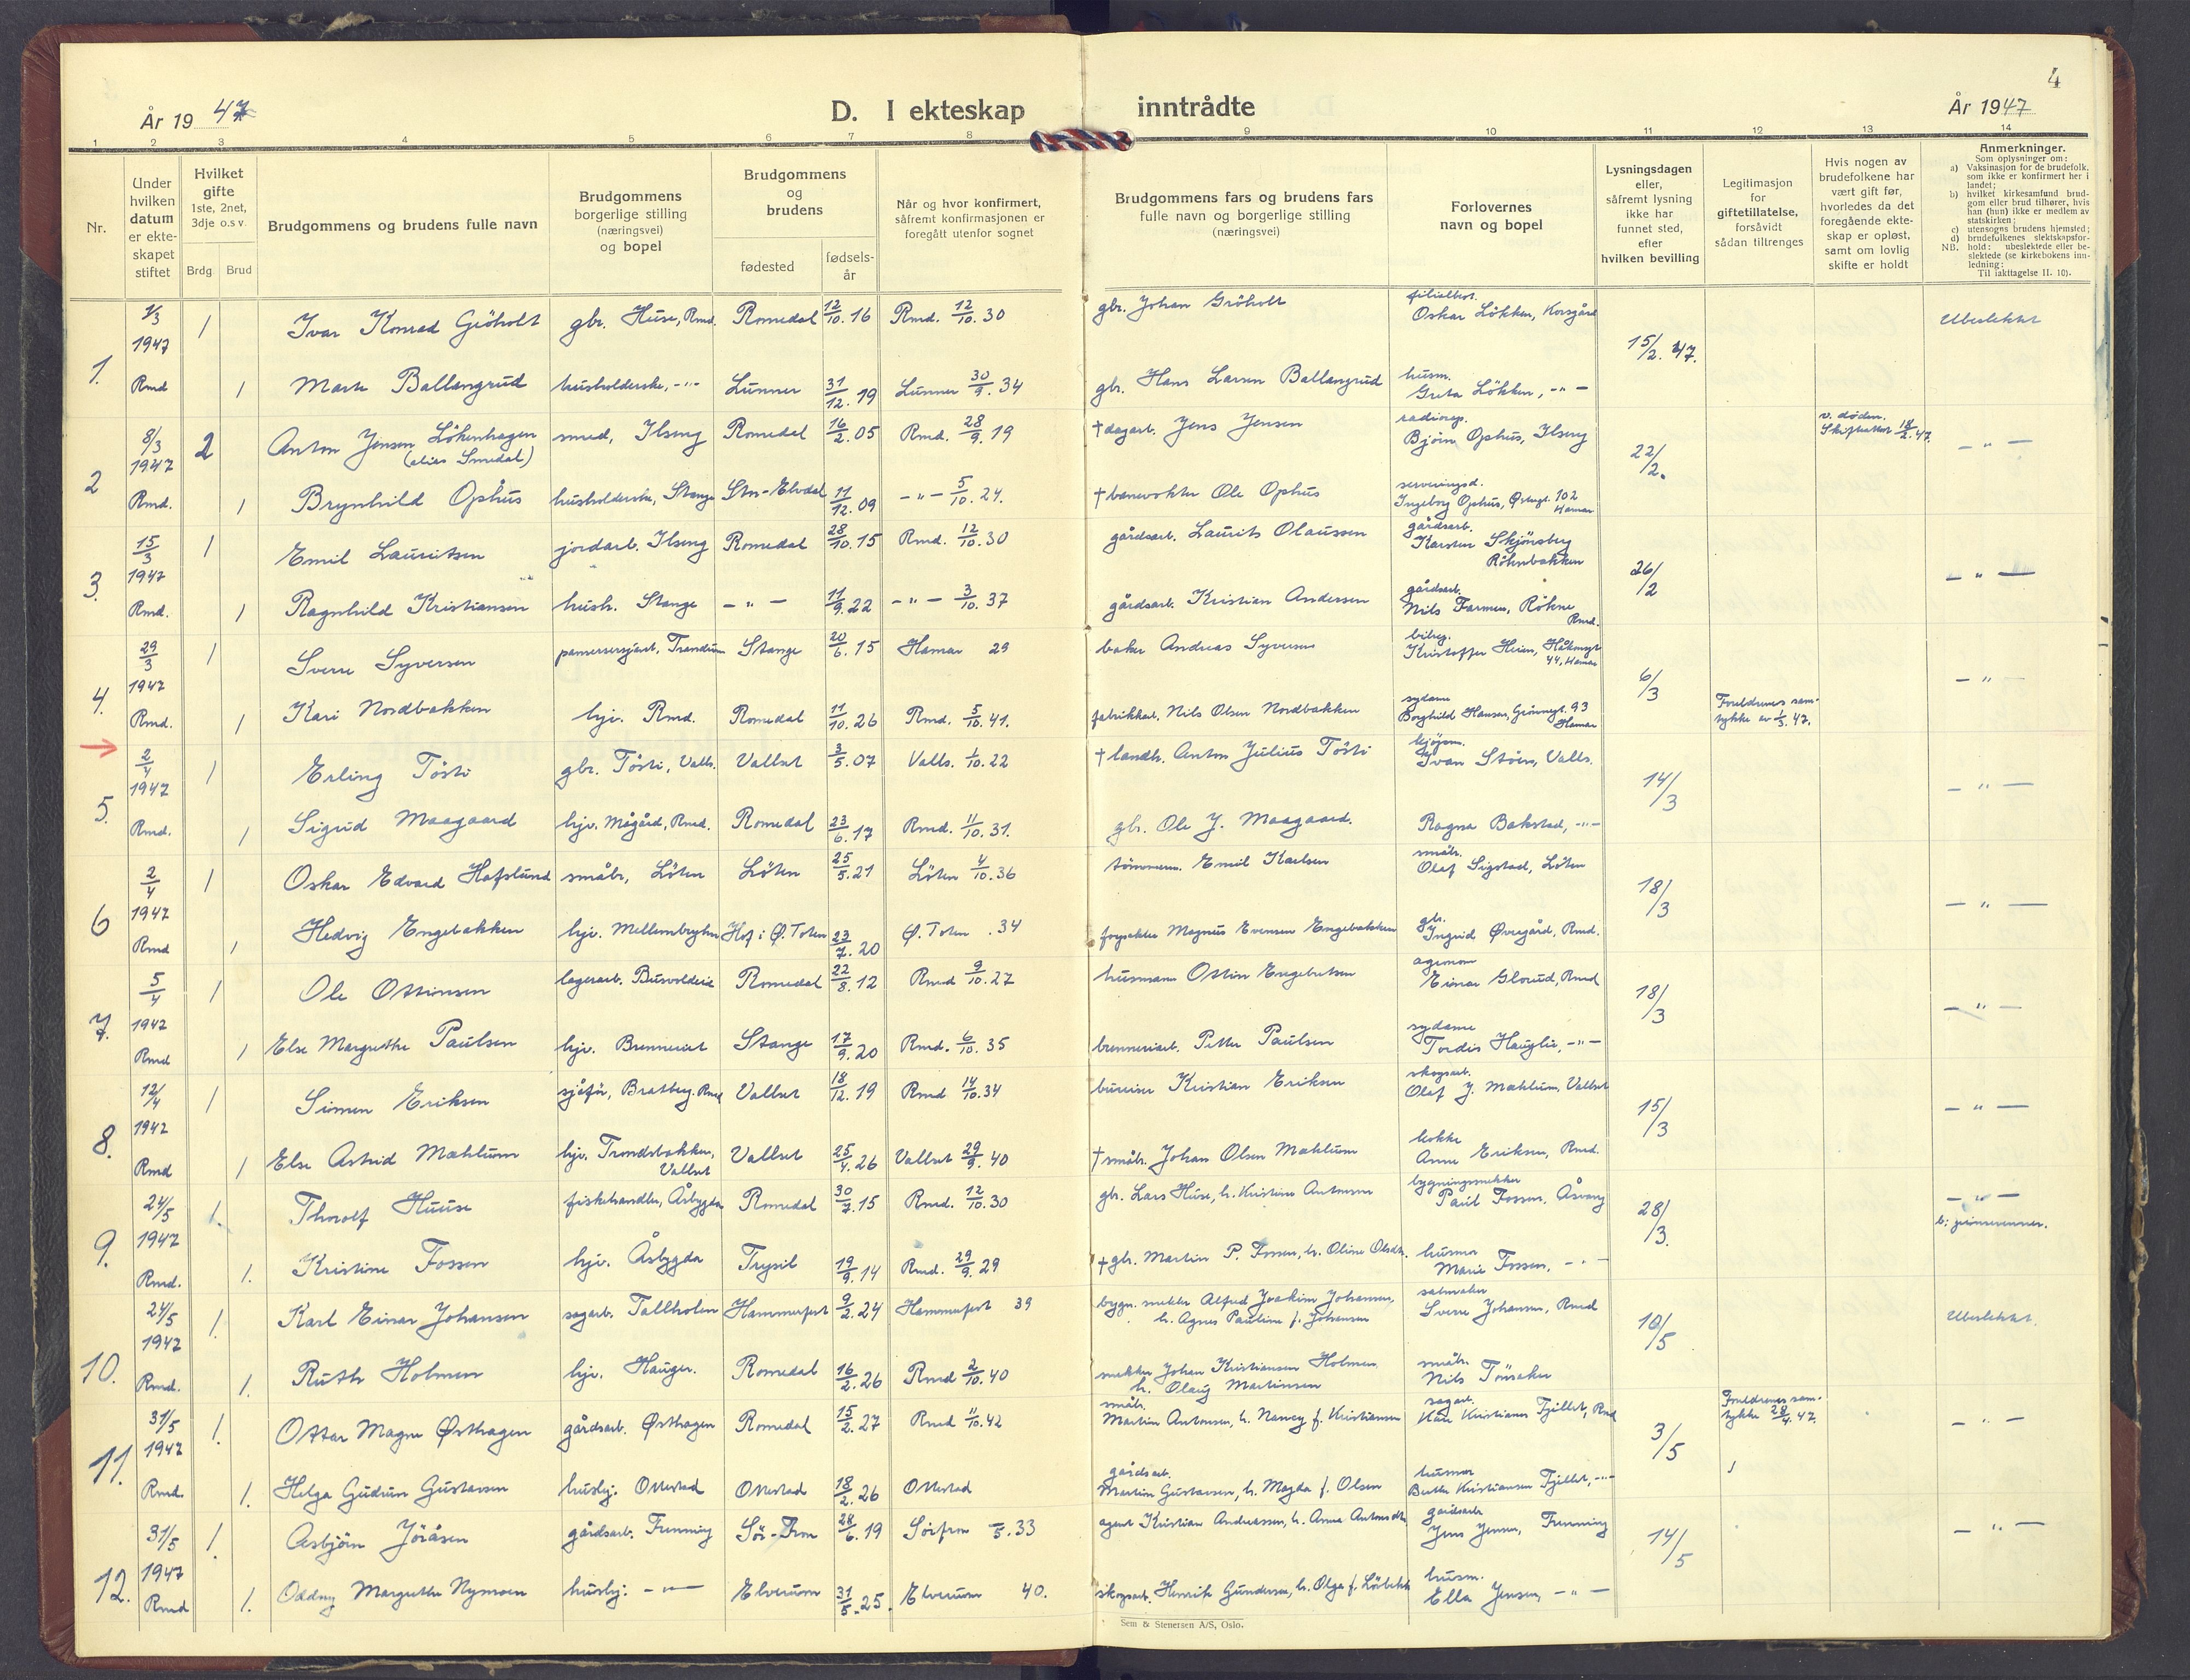 4
År 1947
D. I ekteskap inntrådte
År 1947
1 2 3 4 5 6 7 8 9 10 11 12 13 14
Nr.
Under hvilken datum er ekteskapet stiftet
Hvilket gifte 1ste, 2net, 3dje o.s v.
Brdg Brud
Brudgommens og brudens fulle navn
Brudgommens borgerlige stilling (næringsvei) og bopel
Brudgommens og brudens
fødested
fødselsår
Når og hvor konfirmert, såfremt konfirmasjonen er foregått utenfor sognet
Brudgommens fars og brudens fars fulle navn og borgerlige stilling (næringsvei)
Forlovernes navn og bopel
Lysningsdagen eller, såfremt lysning ikke har funnet sted, efter hvilken bevilling
Legitimasjon for giftetillatelse, forsåvidt sådan tiltrenges
Hvis nogen av brudefolkene har vært gift før, hvorledes da det foregående ekteskap er opløst, samt om lovlig skifte er holdt
Anmerkninger.
Som oplysninger om:
a) Vaksinasjon for de brudefolk, som ikke er konfirmert her i landet;
b) hvilket kirkesamfund brudgom eller brud tilhører, hvis han (hun) ikke er medlem av statskirken;
c) utensogns brudens hjemsted;
d) brudefolkenes slektskapsforhold: ubeslektede eller beslektede (se kirkebokens innledning:
NB. Til iakttagelse II. 10).
1. 1/3 1947 Rmd 1 Ivar Konrad Gröholt gbr. Huse, Rmd. Romedal 12/10.16 Rmd. 12/10.30 gbr. Johan Gröholt filialbest. Oskar Lökken, Korsgård 15/2.47. Ubeslektet
1 Marte Ballangrud husholderske, -"- Lunner 31/12.19 Lunner 30/9.34 gbr. Hans Larsen Ballangrud husm. Greta Lökken, -"-
2 8/3 1947 Rmd. 2 Anton Jensen Lökenhagen (alias Smedal) smed, Ilseng Romedal 16/2.05 Rmd. 28/9.19 † dagarb. Jens Jensen radiorep. Bjørn Ophus, Ilseng 22/2. v. døden. Skifteattest 18/2.47. -"-
1 Brynhild Ophus husholderske, Stange Stor-Elvdal 11/12.09 -"- 5/10.24. † banevokter Ole Ophus serveringsd. Ingeborg Ophus, Østregt. 102 Hamar
3. 15/3 1947 Rmd. 1 Emil Lauritsen jordarb. Ilseng Romedal 28/10.15 Rmd. 12/10.30 gårdsarb. Laurits Olaussen gårdsarb. Karsten Skjönsberg Röhnebakken 26/2 -"-
1 Ragnhild Kristiansen hush. Stange -"- 11/9.22 -"- 3/10.37 gårdsarb. Kristian Andersen gårdsarb. Nils Farmen, Röhne Rmd.
4. 29/3 1947 Rmd. 1 Sverre Syversen pansersersjant, Trandum Stange 20/6.15 Hamar 29 baker Andreas Syversen Kristoffer Heim, Håkonsgt 44, Hamar 6/3 -"-
1 Kari Nordbakken hjv. Rmd. Romedal 11/10.26 Rmd. 5/10.41. fabrikkarb. Nils Olsen Nordbakken sydame Borghild Hansen, Grönnegt. 93 Hamar Foreldrenes samtykke av 1/3.47.
5. 2/4 1947 Rmd. 1 Erling Tösti gbr. Tösti, Valls. Vallset 3/5.07 Valls. 1/10.22 † landh. Anton Julius Tösti Ivan Stöen, Valls. 14/3 -"-
1 Sigrid Maagaard hjv. Mågård, Rmd. Romedal 23/6.17 Rmd. 11/10.31. gbr. Ole J. Maagaard. Ragna Bakstad, -"-
6 2/4 1947 Rmd 1 Oskar Edvard Hafslund småbr, Löten Löten 25/5.21 Löten 4/10.36 tömmerm. Emil Karlsen småbr. Olaf Sigstad, Löten 18/3 -"-
1 Hedvig Engebakken hjv. Mellembryhn Hof i Ø. Toten 23/7.20 Ø. Toten .34 forpakter Magnus Evensen Engebakken gbr. Ingrid Øvregård, Rmd.
7. 5/4 1947 Rmd 1 Ole Ottinsen lagerarb. Romedal 22/8.12 Rmd 9/10.27 husmann Ottin Engebretsen agronom Einar Glorud, Rmd 18/3 -"-
1 Else Margrethe Paulsen hjv. Brenneriet Stange 17/9.20 Rmd. 6/10.35 brenneriarb. Petter Paulsen sydame Tordis Hauglie, -"-
8. 12/4 1947 Rmd 1 Simen Eriksen sjåfør, Bratberg. Rmd Vallset 18/12.19 Rmd 14/10.34 bureiser Kristian Eriksen skogsarb. Olaf J. Mæhlum, Vallset 15/3 -"-
1 Else Astrid Mæhlum hjv. Trondsbakken, Vallset Vallset 25/4.26 Vallset 29/9.40 † småbr. Johan Olsen Mæhlum kokke Anne Eriksen, Rmd.
9. 24/5 1947 Rmd. 1. Thorolf Huuse fiskehandler, Åsbygda Romedal 30/7.15 Rmd. 12/10.30 gbr. Lars Huse, h. Kristine Antonsen bygningssnekker Paul Fossen, Åsvang 28/3. -"- b: pinsevenner.
1. Kristine Fossen hjv. Åsbygda Trysil 19/9.14 Rmd. 29/9.29 † gbr. Martin P. Fossen, h. Oline Olsdtr. husmor Marie Fossen, -"-
10. 24/5 1947 Rmd. 1. Karl Einar Johansen sagarb. Tallholen Hammerfest 9/2.24 Hammerfest 39 bygn. snekker Alfred Joakim Johansen, h. Agnes Pauline f. Johansen salmaker Sverre Johansen, Rmd 10/5 Ubeslektet.
1. Ruth Holmen hjv. Hauger. Romedal 16/2.26 Rmd 2/10.40 snekker Johan Kristiansen Holmen h. Olaug Martinsen småbr. Nils Tönsaker
11. 31/5 1947 Rmd. 1. Ottar Magne Østhagen gårdsarb. Østhagen Romedal 15/2.27 Rmd 11/10.42 småbr. Martin Antonsen, h. Nancy f. Kristiansen sagarb. Kåre Kristiansen Fjellet, Rmd 3/5 Foreldrenes samtykke 28/4.47. -"-
1. Helga Gudrun Gustavsen hushj. Ottestad Ottestad 18/2.26 Ottestad gårdsarb. Martin Gustavsen, h. Magda f. Olsen husmor Berthe Kristiansen Fjellet, -"-
12. 31/5 1947 Rmd 1. Asbjörn Jöråsen gårdsarb. Frenning Sör-Fron 28/6.19 Sörfron -/5.33 agent Kristian Andreassen, h. Anna Antonsdtr. gårdsarb Jens Jensen, Frenning 14/5 -"-
1. Oddny Margrethe Nymoen hushj: -"- Elverum 31/5.25. Elverum 40. skogsarb. Henrik Gundersen, h. Olga f. husm. Ella Jensen, -"-
Sem & Stenersen A/S, Oslo.